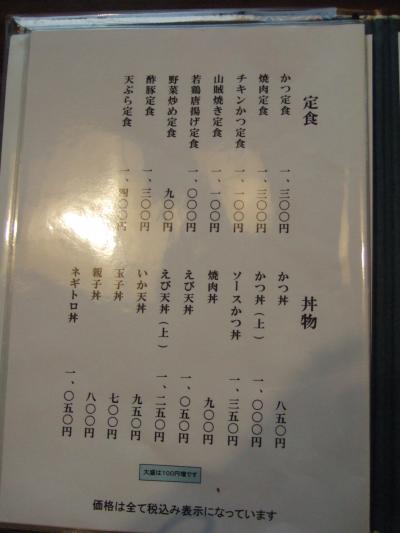 定食
かつ定食 一、三〇〇円
焼肉定食 一、三〇〇円
チキンかつ定食 一、一〇〇円
山賊焼き定食 一、一〇〇円
若鶏唐揚げ定食 一、〇〇〇円
野菜炒め定食 九〇〇円
酢豚定食 一、三〇〇円
天ぷら定食 一、四〇〇円
丼物
かつ丼 八五〇円
かつ丼（上） 一、〇〇〇円
ソースかつ丼 一、三五〇円
焼肉丼 九〇〇円
えび丼 一、〇五〇円
えび天丼（上） 一、二五〇円
いか天丼 九五〇円
玉子丼 七〇〇円
親子丼 八〇〇円
ネギトロ丼 一、〇五〇円
大盛は100円増です
価格は全て税込み表示になっています